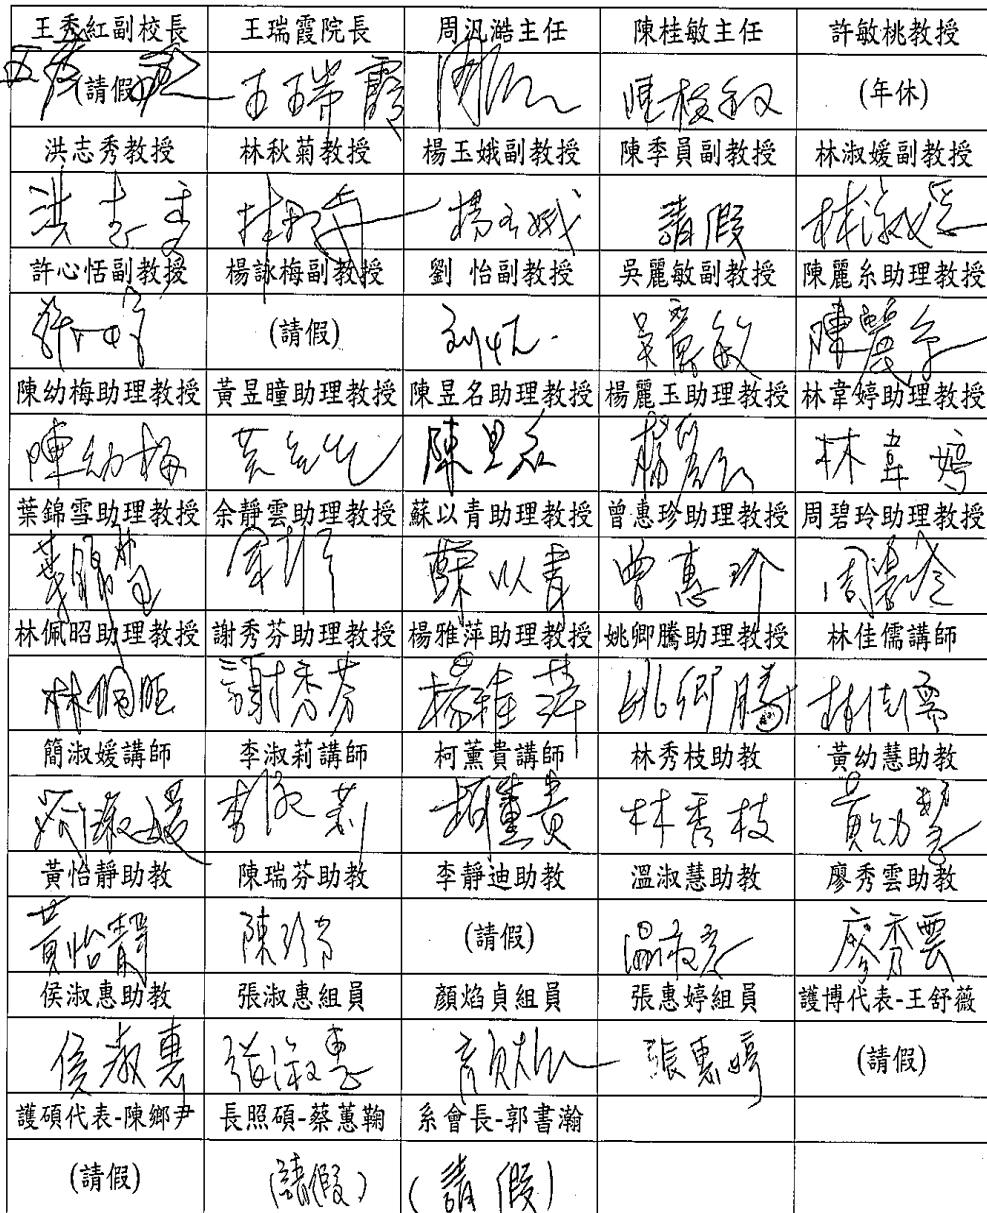 王秀紅副校長 王瑞霞院長 周汎澔主任 陳桂敏主任 許敏桃教授
(請假) 王瑞霞 陳桂敏 (年休)
洪志秀教授 林秋菊教授 楊玉娥副教授 陳季員副教授 林淑媛副教授
洪志秀 林秋菊 楊玉娥 請假 林淑媛
許心恬副教授 楊詠梅副教授 劉 怡副教授 吳麗敏副教授 陳麗糸助理教授
許心恬 (請假) 劉怡 吳麗敏 陳麗糸
陳幼梅助理教授 黃昱瞳助理教授 陳昱名助理教授 楊麗玉助理教授 林韋婷助理教授
陳幼梅 陳昱名 林韋婷
葉錦雪助理教授 余靜雲助理教授 蘇以青助理教授 曾惠珍助理教授 周碧玲助理教授
葉錦雪 蘇以青 曾惠珍 周碧玲
林佩昭助理教授 謝秀芬助理教授 楊雅萍助理教授 姚卿騰助理教授 林佳儒講師
林佩昭 謝秀芬 楊雅萍 姚卿騰 林佳儒
簡淑媛講師 李淑莉講師 柯薰貴講師 林秀枝助教 黃幼慧助教
簡淑媛 李淑莉 柯薰貴 林秀枝 黃幼慧
黃怡靜助教 陳瑞芬助教 李靜迪助教 溫淑慧助教 廖秀雲助教
黃怡靜 陳瑞芬 (請假) 溫淑慧 廖秀雲
侯淑惠助教 張淑惠組員 顏焰貞組員 張惠婷組員 護博代表-王舒薇
侯淑惠 張淑惠 張惠婷 (請假)
護碩代表-陳鄉尹 長照碩-蔡蕙鞠 系會長-郭書瀚
(請假) (請假) (請假)